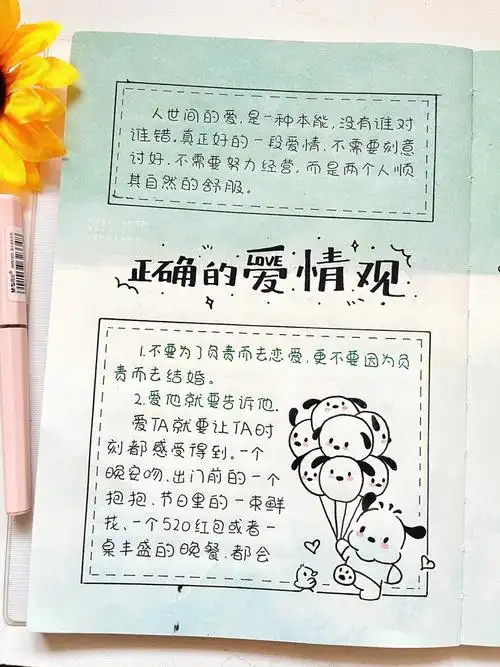 人世间的爱,是一种本能,没有谁对
谁错。真正好的一段爱情,不需要刻意
讨好,不需要努力经营,而是两个人顺
其自然的舒服。
正确的爱情观
LOVE
1.不要为了负责而去恋爱,更不要因为负
责而去结婚。
2.爱他就要告诉他.
爱TA就要让TA时
刻都感受得到。一个
晚安吻、出门前的一个
抱抱、节日里的一束鲜
花、一个520红包或者一
桌丰盛的晚餐,都会
M&G